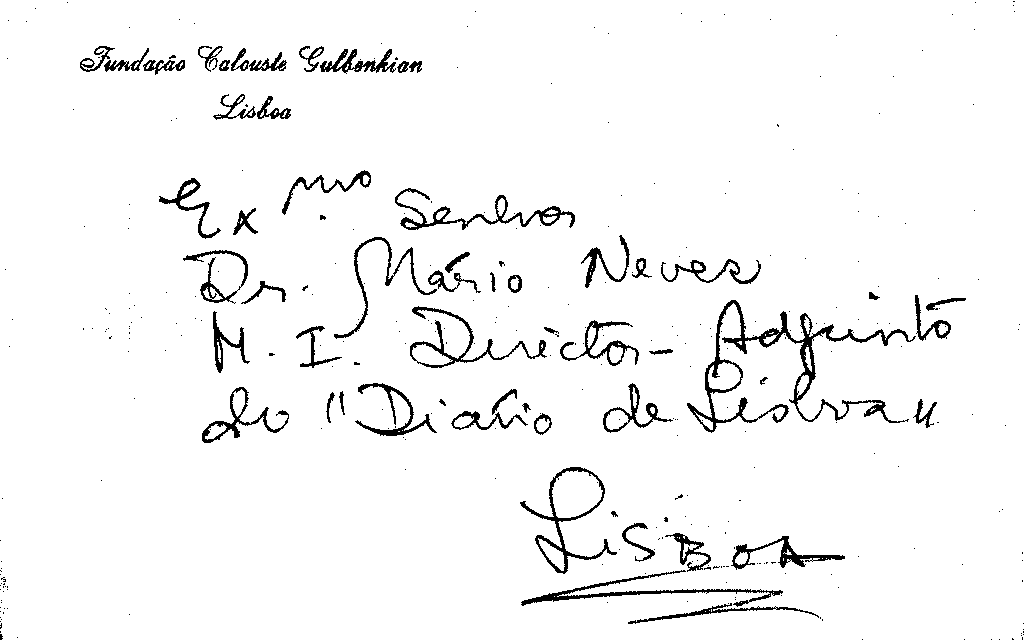 Fundação Calouste Gulbenkian
Lisboa
Ex.mo Senhor
Dr. Mário Neves
M. I. Director-Adjunto
do "Diário de Lisboa"
LISBOA